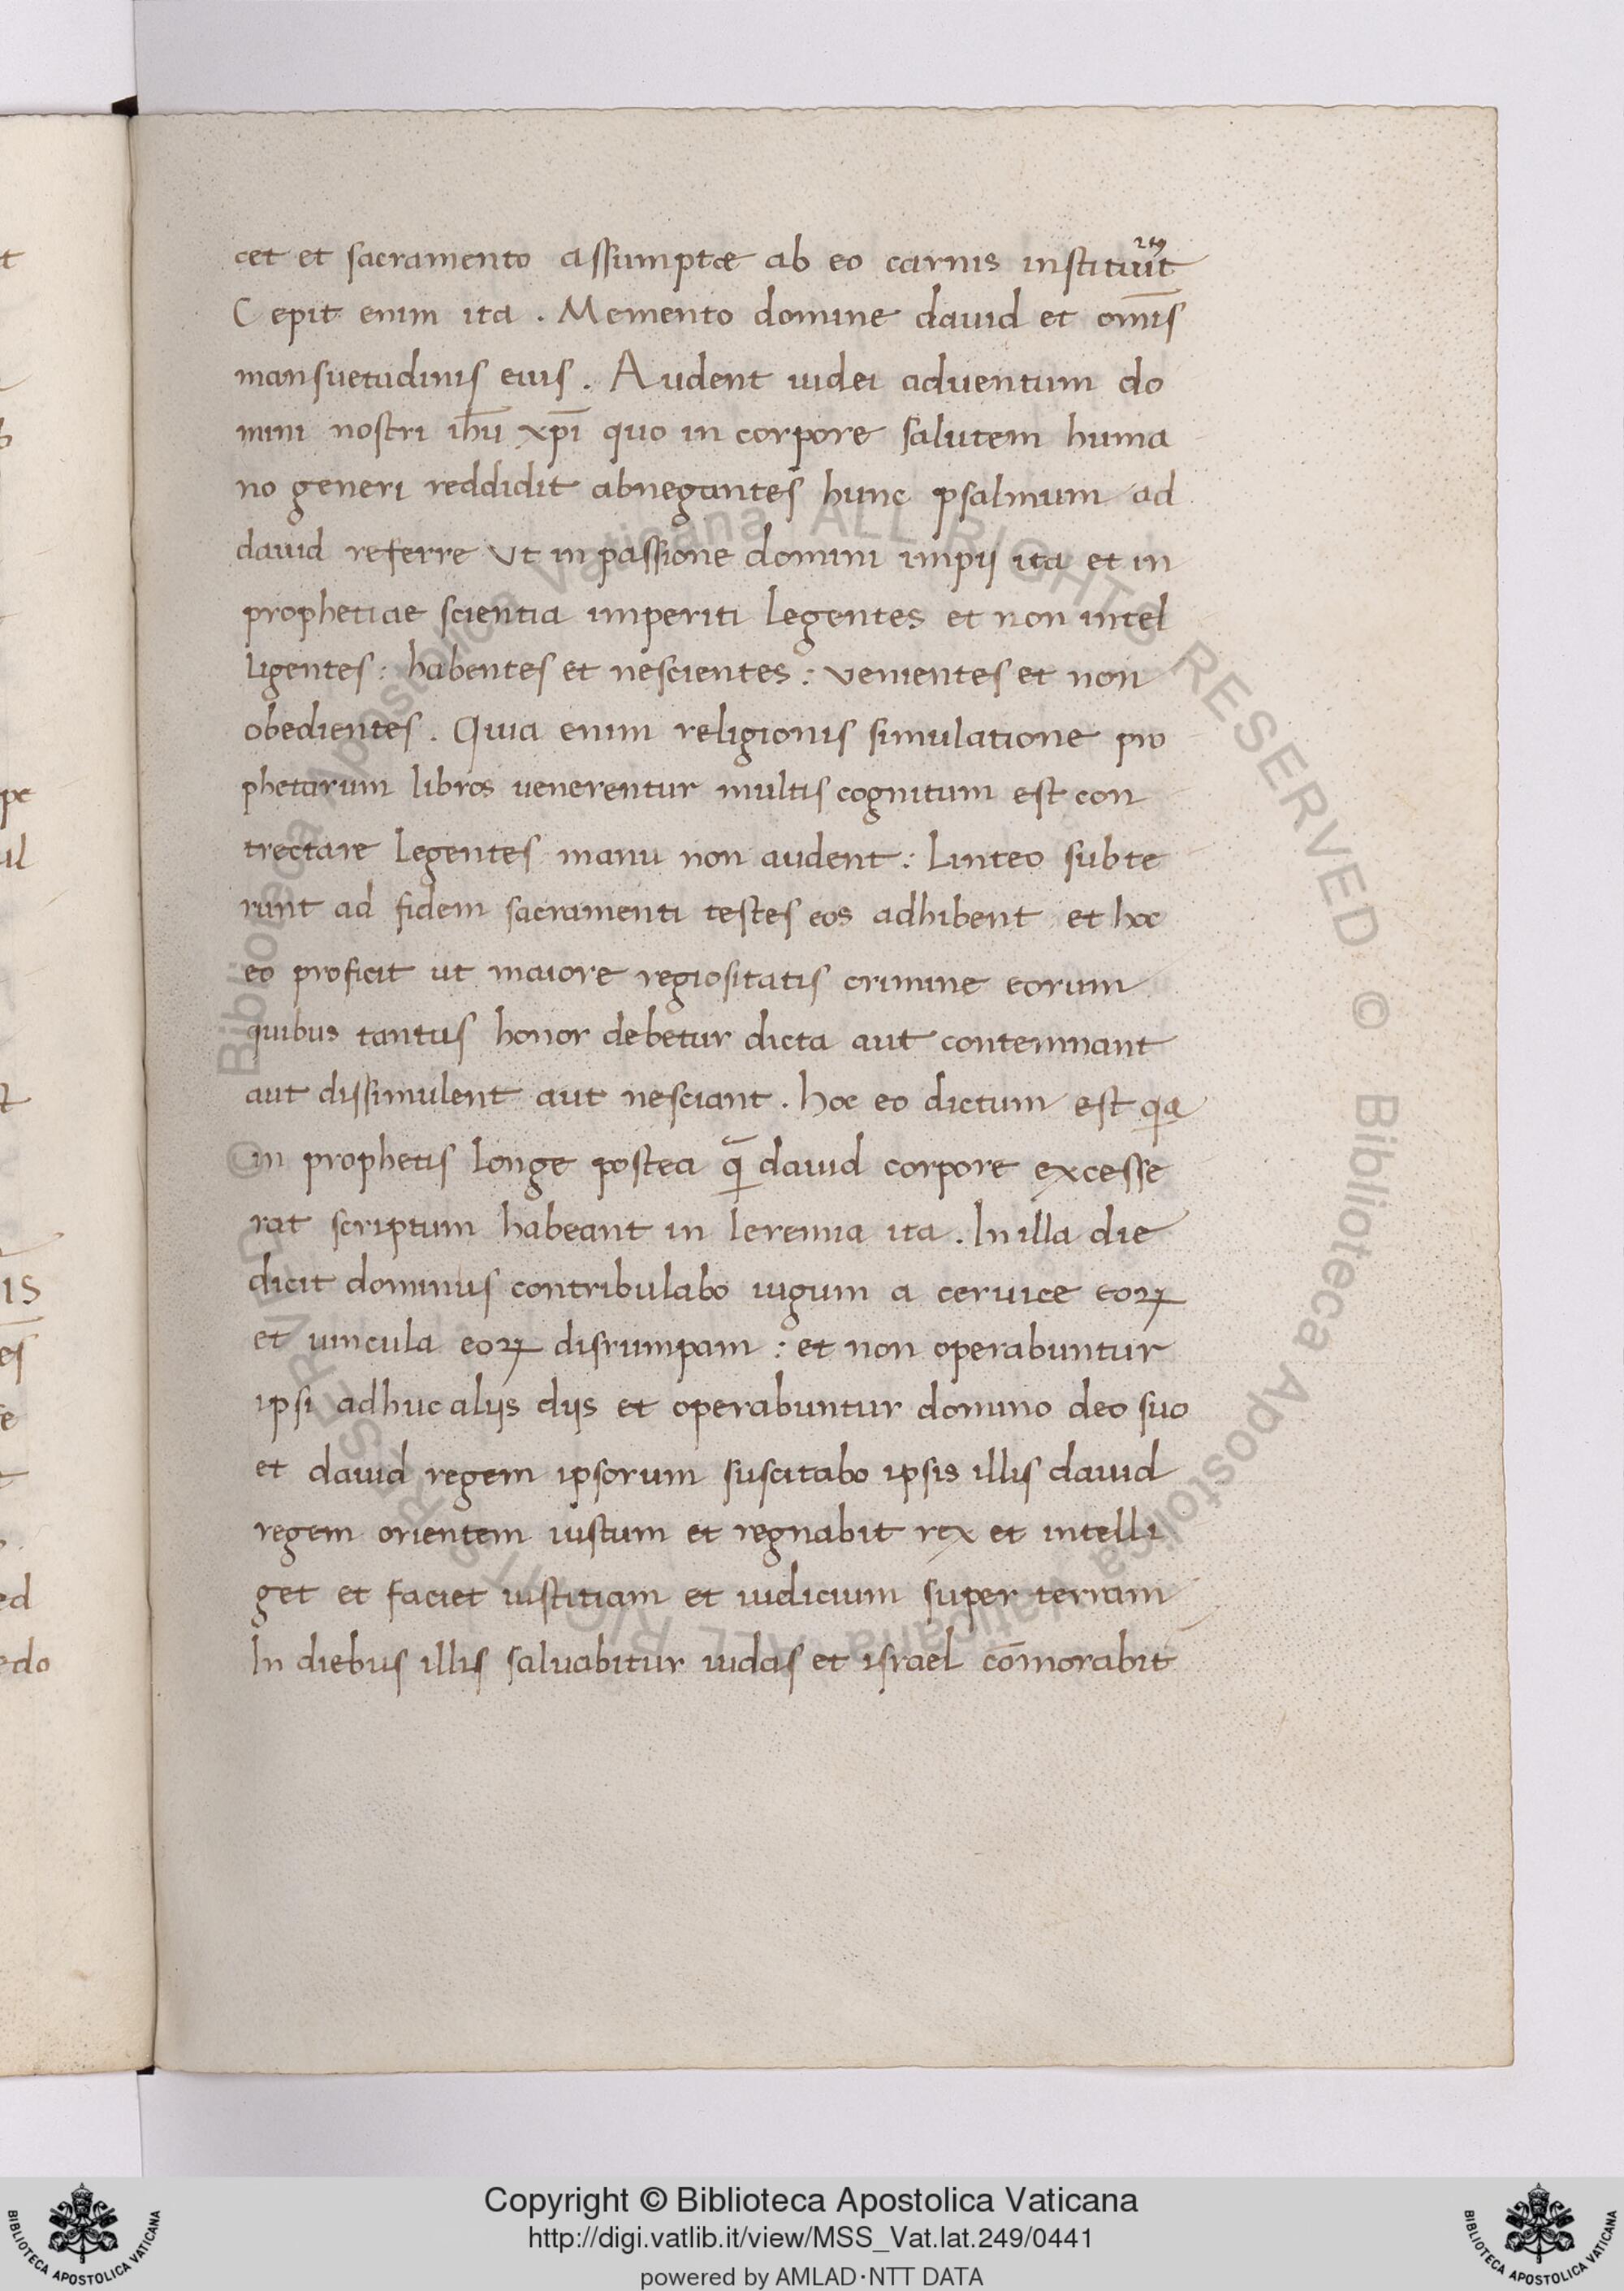 cet et sacramento assumptæ ab eo carnis instituit
Cepit enim ita . Memento domine dauid et om̄is
mansuetudinis eius . Audent iudei aduentum do
mini nostri ih̄u xp̄i quo in corpore salutem huma
no generi reddidit abnegantes hunc psalmum ad
dauid referre Vt in passione domini impij ita et in
prophetiae scientia imperiti legentes et non intel
ligentes : habentes et nescientes : venientes et non
obedientes . Quia enim religionis simulatione pro
phetarum libros uenerentur multis cognitum est con
trectare legentes manu non audent : linteo subte
runt ad fidem sacramenti testes eos adhibent et hoc
eo proficit ut maiore regiositatis crimine eorum
quibus tantus honor debetur dicta aut contemnant
aut dissimulent aut nesciant . hoc eo dictum est qa
in prophetis longe postea q̄ dauid corpore excesse
rat scriptum habeant in Ieremia ita . In illa die
dicit dominus contribulabo iugum a ceruice eoꝝ
et uincula eoꝝ disrumpam : et non operabuntur
ipsi adhuc alijs dijs et operabuntur domino deo suo
et dauid regem ipsorum suscitabo ipsis illis dauid
regem orientem iustum et regnabit rex et intelli
get et faciet iustitiam et iudicium super terram
In diebus illis saluabitur iudas et israel com̄orabit
Copyright © Biblioteca Apostolica Vaticana
http://digi.vatlib.it/view/MSS_Vat.lat.249/0441
powered by AMLAD·NTT DATA
BIBLIOTECA APOSTOLICA VATICANA
BIBLIOTECA APOSTOLICA VATICANA